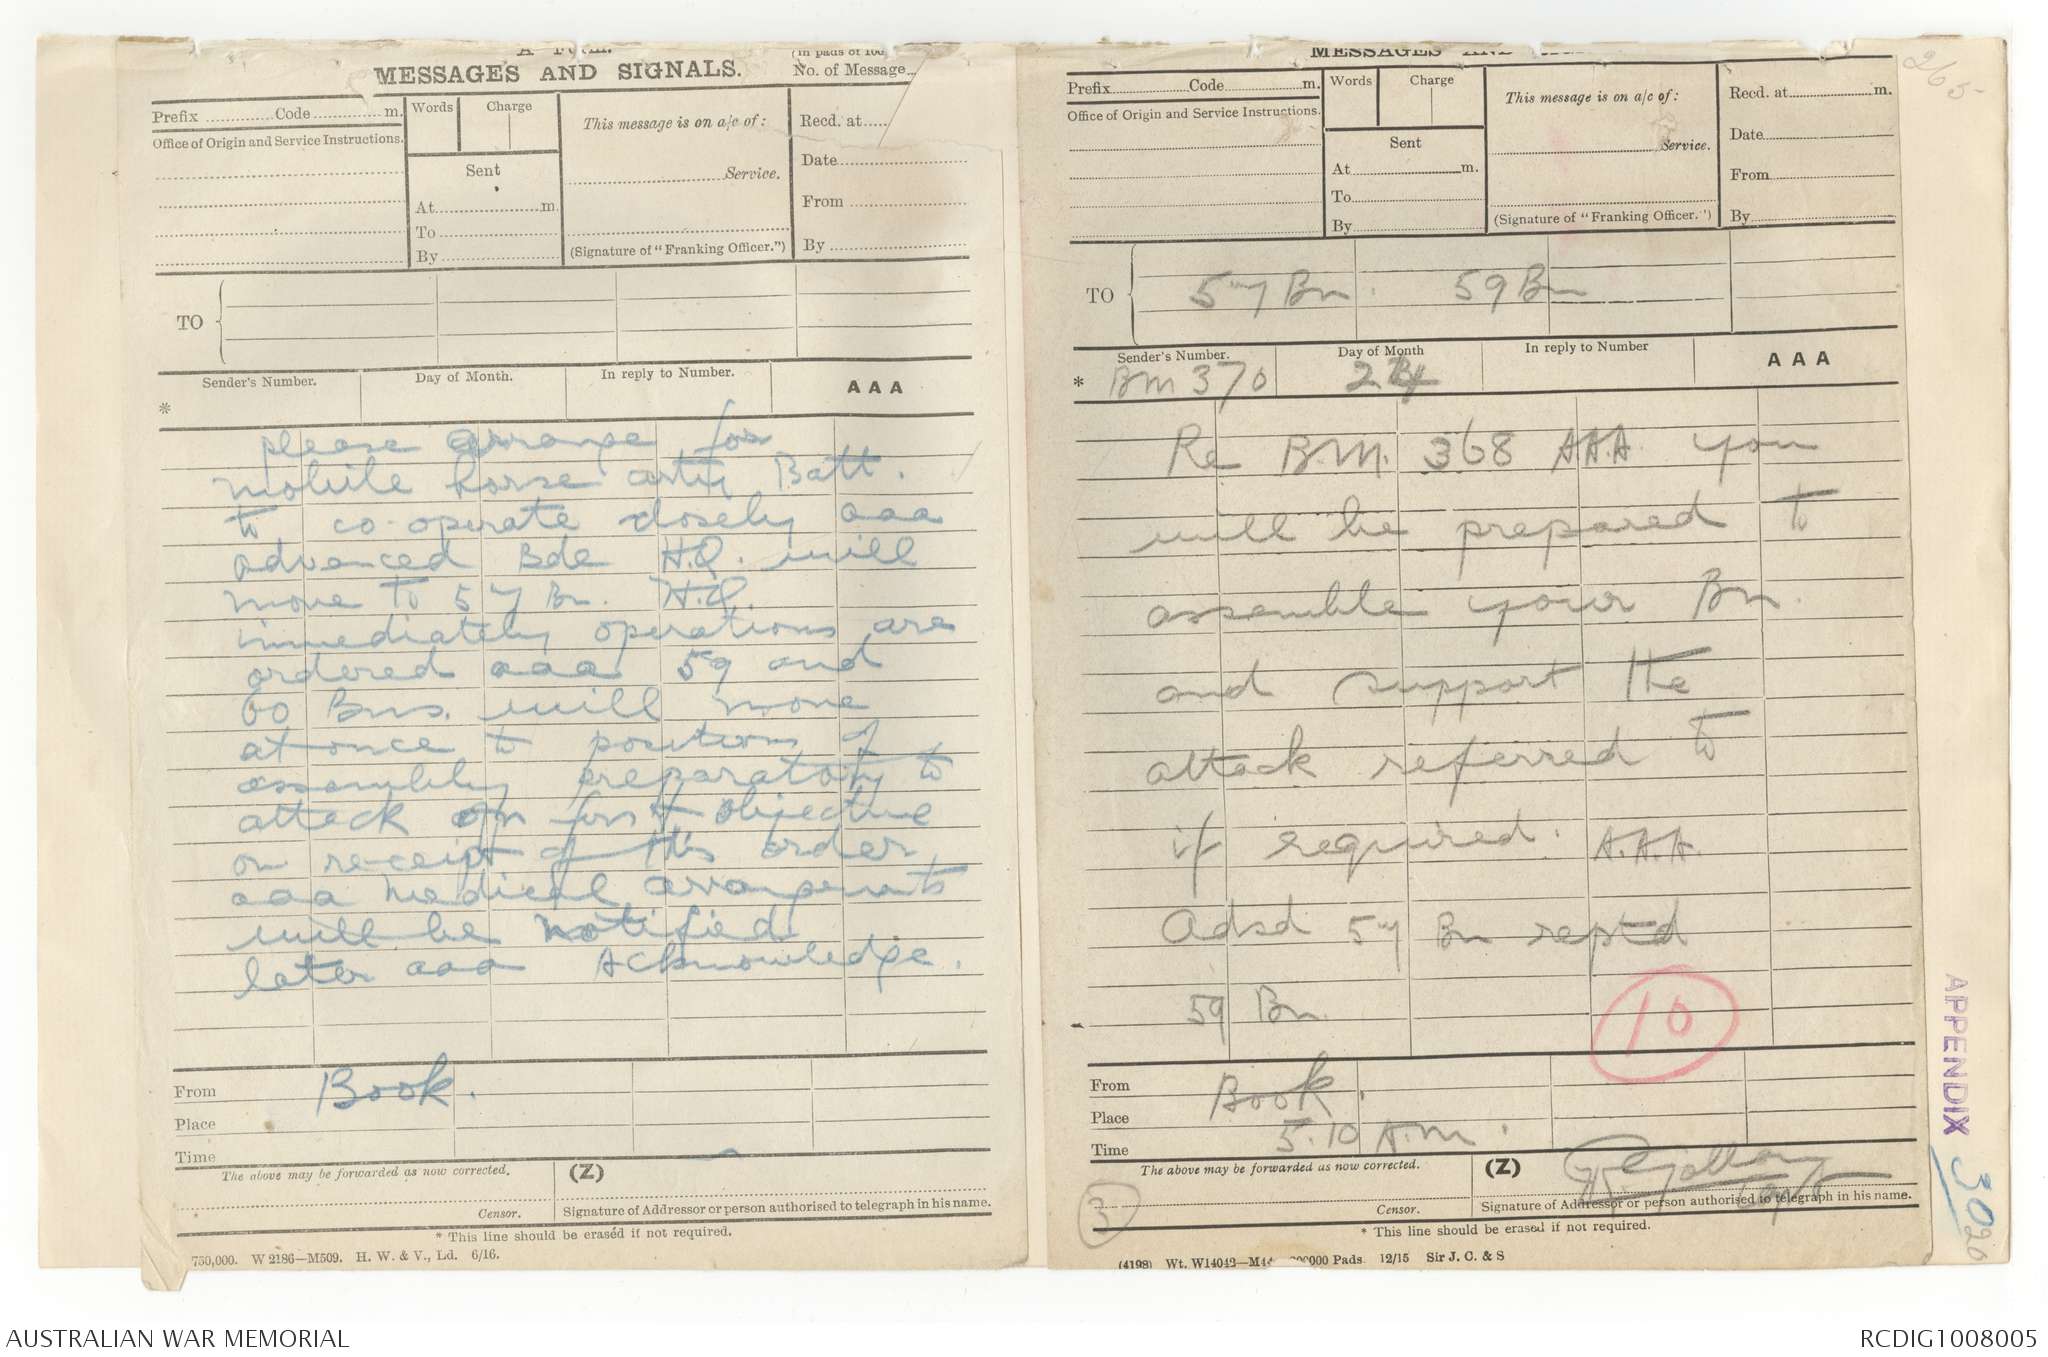 "A" Form.
MESSAGES AND SIGNALS.
(In pads of 100
No. of Message
Prefix Code m.
Office of Origin and Service Instructions.
Words Charge
Sent
At m.
To
By
This message is on a/c of:
Service.
(Signature of "Franking Officer.")
Recd. at
Date
From
By
TO
Sender's Number. Day of Month. In reply to Number. AAA
*
please arrange for
mobile horse arty Batt.
to co-operate closely aaa
advanced Bde H.Q. will
move to 57 Bn. H.Q.
immediately operations are
ordered aaa 59 and
60 Bns. will move
at once to positions of
assembly preparatory to
attack on first objective
on receipt of this order
aaa Medical arrangements
will be notified
later aaa Acknowledge.
From Book.
Place
Time
The above may be forwarded as now corrected. (Z)
Censor. Signature of Addressor or person authorised to telegraph in his name.
* This line should be erased if not required.
750,000. W 2186—M509. H. W. & V., Ld. 6/16.
MESSAGES AND
265
Prefix Code m.
Office of Origin and Service Instructions.
Words Charge
Sent
At m.
To
By
This message is on a/c of:
Service.
(Signature of "Franking Officer.")
Recd. at m.
Date
From
By
TO 57 Bn. 59 Bn
Sender's Number. Day of Month In reply to Number AAA
* BM 370 24
Re B.M. 368 AAA you
will be prepared to
assemble your Bn.
and support the
attack referred to
if required. A.A.A.
Adsd 57 Bn reptd
59 Bn.
10
From Book.
Place
Time 5.10 A.m.
The above may be forwarded as now corrected. (Z)
Capt
Censor. Signature of Addressor or person authorised to telegraph in his name.
3
* This line should be erased if not required.
(4198) Wt. W14042—M44 000 Pads. 12/15 Sir J. C. & S
APPENDIX 30
20
AUSTRALIAN WAR MEMORIAL
RCDIG1008005